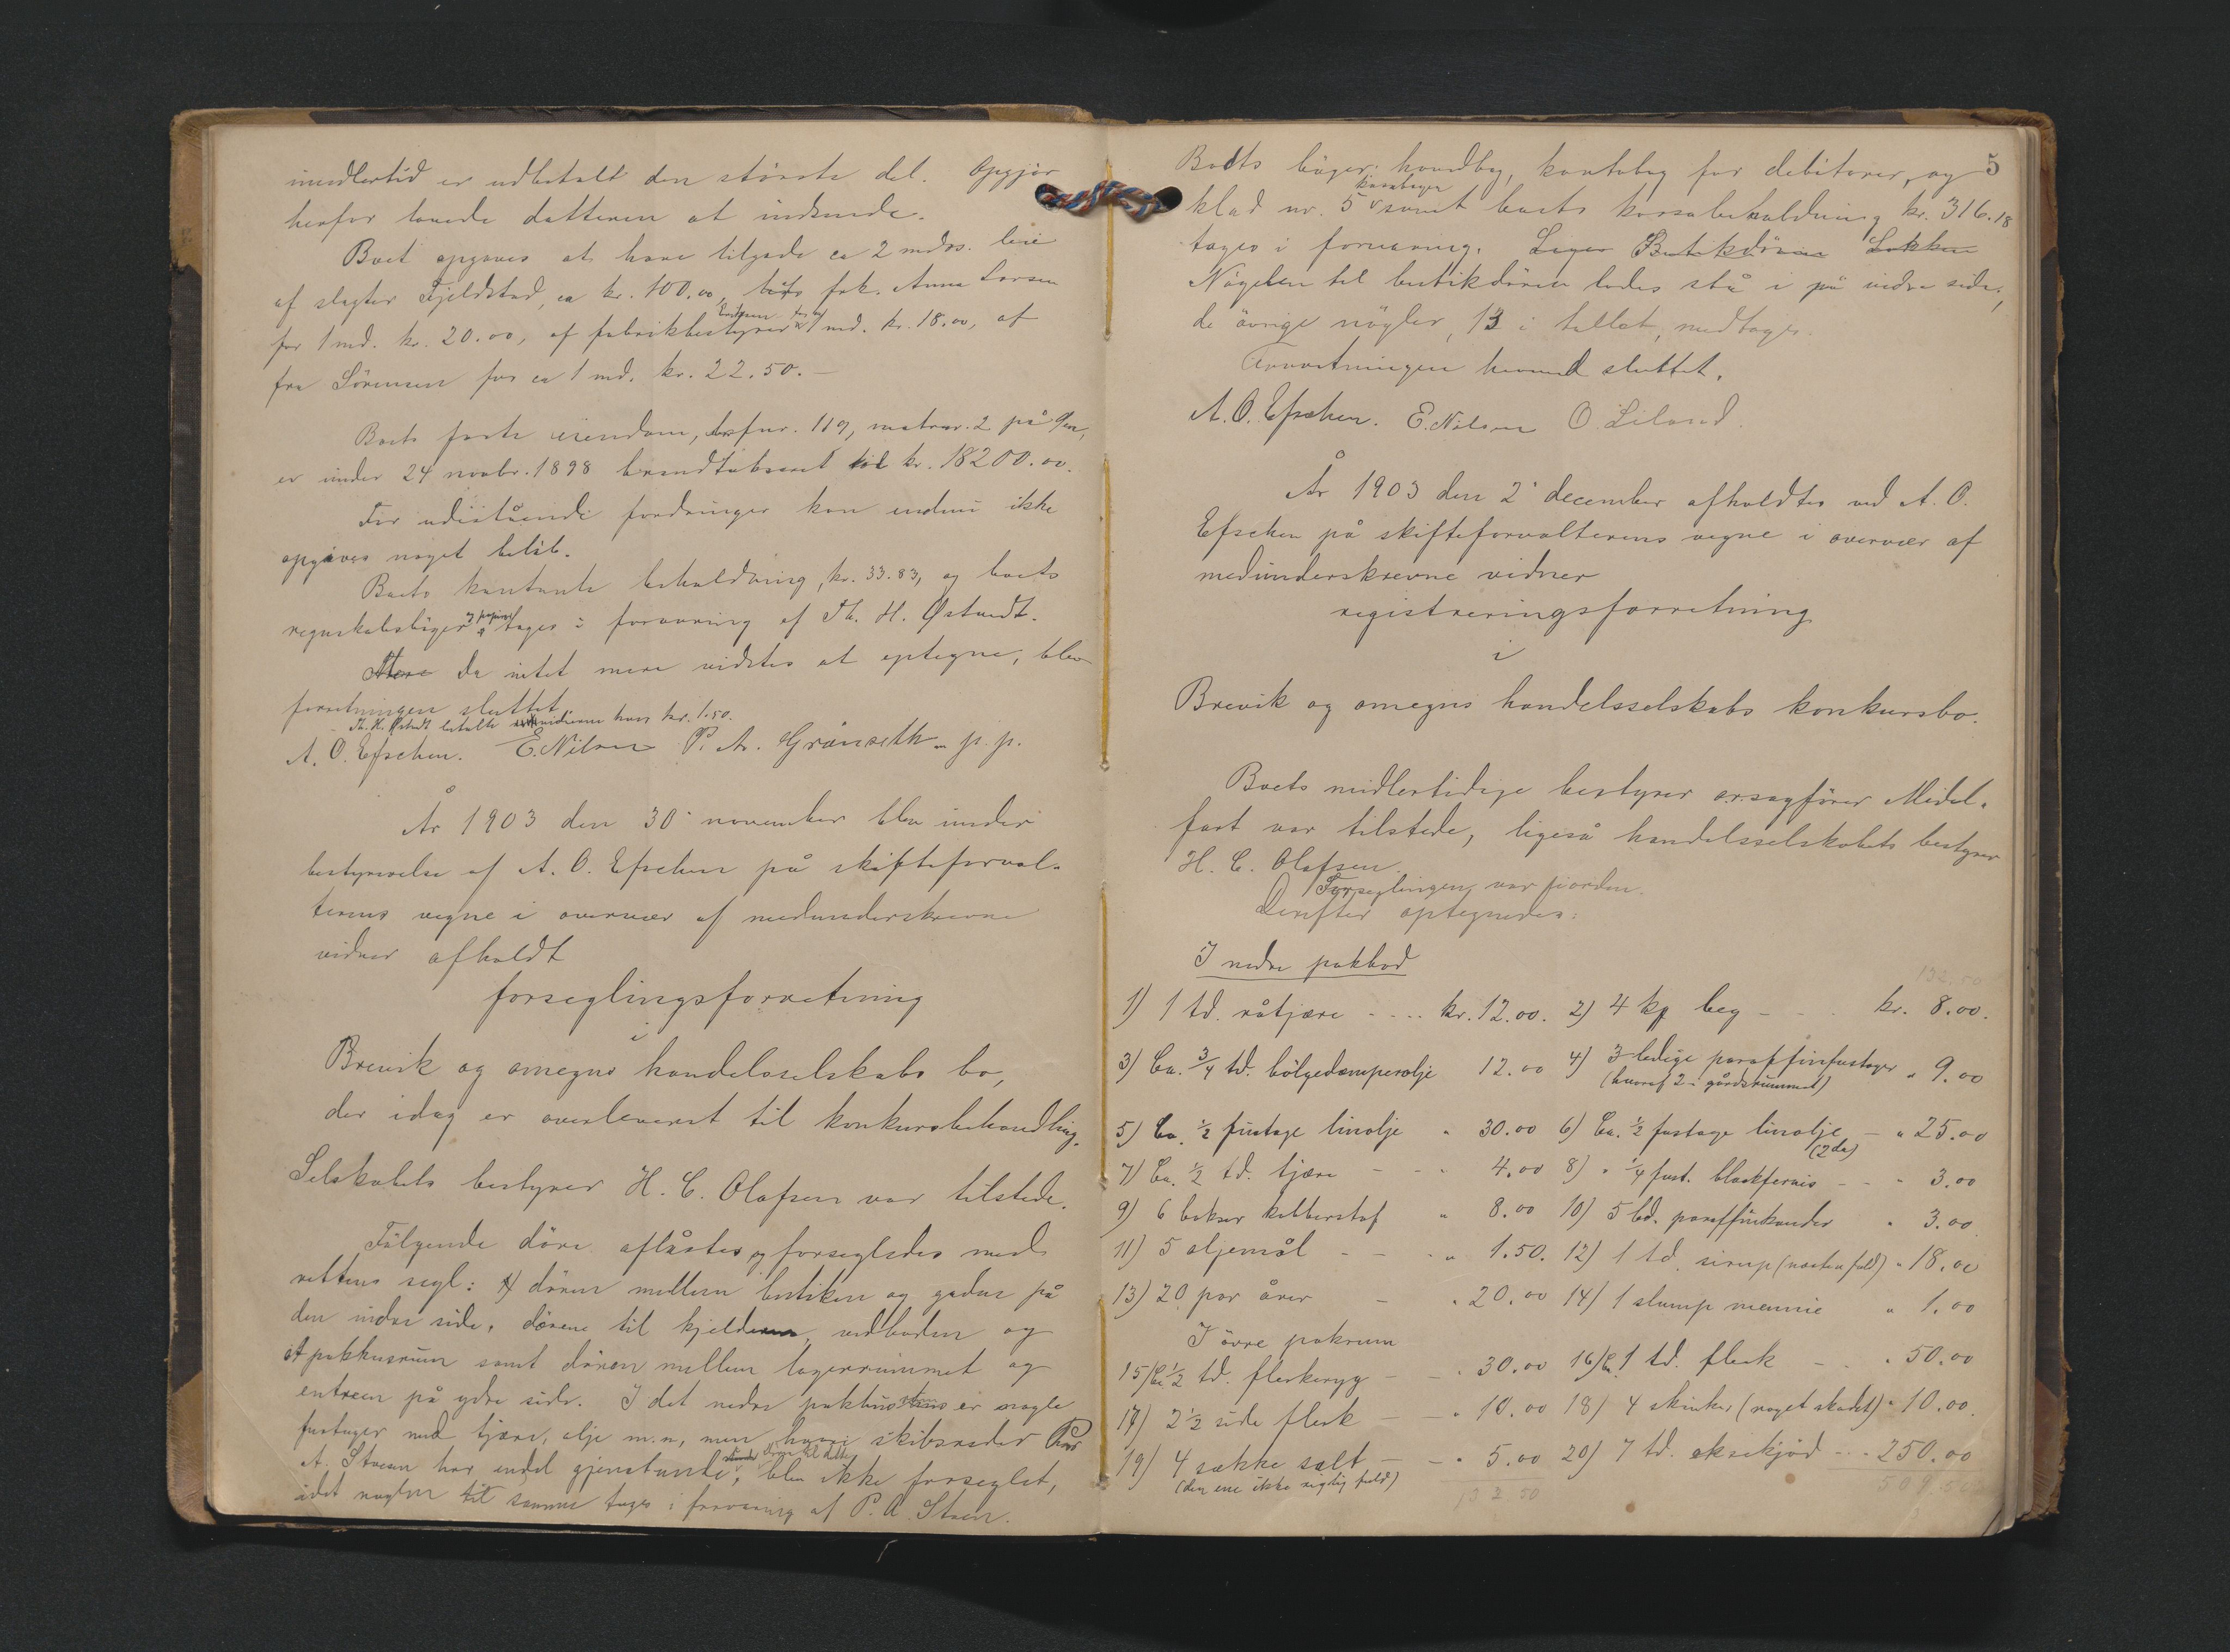 imidlertid er udbetalt den största del. Opgjör
herfor lovede datteren at indsende.
Boet opgaves at have tilgode ca 2 mdrs. leie
af slagter Fjeldstad, ca kr. 100.00, frk. Anna Larsen
for 1 md. kr. 20.00, af fabrikbestyrer for 1 md. kr. 18.00, af
fra Sörensen for ca 1 md. kr. 22.50.—
Boets faste eiendom, brsfnr. 119, matrnr. 2 på Øen,
er under 24 novbr. 1898 brandtakseret til kr. 18200.00.
For udestående fordringer kan endnu ikke
opgives noget belöb.
Boets kontante beholdning, kr. 33.83, og boets
regnskabsböger og papirer tages i forvaring af Th. H. Østvedt.
Mere Da intet mere vidstes at optegne, blev
forretningen sluttet.
Th. H. Østvedt betalte vidnerne hver kr. 1.50.
A. O. Efschen. E. Nilsen P. A. Grönseth p.p.
År 1903 den 30' november blev under
bestyrelse af A. O. Efschen på skifteforval-
terens vegne i overvær af medunderskrevne
vidner afholdt
forseglingsforretning
i
Brevik og omegns handelsselskabs bo,
der idag er overleveret til konkursbehandling.
Selskabets bestyrer H. C. Olafsen var tilstede.
Fölgende döre aflåstes og forsegledes med
rettens segl: dören mellem butiken og gaden på
den indre side, dörene til kjelderen, vedboden og
et pakkusrum samt dören mellem lagerrummet og
entreen på ydre side. I det nedre pakhusrum er nogle
fustager med tjære, olje m.m, men hvori skibsreder P.
A. Stoen har endel gjenstande, dören til dette blev ikke forseglet,
idet nöglen til samme toges i forvaring af P. A. Stoen.
5
Boets böger: haandbog, kontobog for debitorer, og
klad nr. 5 kassabogen samt boets kassabeholdning kr. 316.18
toges i forvaring. Liges Butikdören Lukken
Nögelen til butikdören lodes stå i på indre side,
de övrige nögler, 13 i tallet, medtoges.
Forretningen hermed sluttet.
A. O. Efschen. E. Nilsen O. Liland.
År 1903 den 2' december afholdtes ved A. O.
Efschen på skifteforvalterens vegne i overvær af
medunderskrevne vidner
registreringsforretning
i
Brevik og omegns handelsselskabs konkursbo.
Boets midlertidige bestyrer o.r.sagförer Midel-
fart var tilstede, ligeså handelsselskabets bestyrer
H. C. Olafsen.
Forseglingen var i orden.
Derefter optegnedes:
I nedre pakbod
132.50
1) 1 td. råtjære - - - - kr. 12.00. 2) 4 kg beg - - - kr. 8.00.
3) Ca. 3/4 td. bölgedæmperolje 12.00 4) 3 ledige paraffinfustager " 9.00
(hvoraf 2 i gårdsrummet)
5) Ca. 1/2 fustage linolje " 30.00 6) Ca. 1/2 fustage linolje - " 25.00
(2da)
7) Ca. 1/2 td. tjære - - - 4.00 8) " 1/4 fust. blackfernis - - " 3.00
9) 6 bokser kobberstof " 8.00 10) 5 bd. paraffinkander " 3.00
11) 5 oljemål - - - " 1.50. 12) 1 td. sirup (næsten fuld) " 18.00
13) 20 par årer - " 20.00 14) 1 slump mønnie " 1.00
I övre pakrum
15) Ca 1/2 td. fleskeryg - - " 30.00 16) Ca. 1 td. flesk - - " 50.00
17) 2 1/2 side flesk - - " 10.00 18) 4 skinker (noget skadet) " 10.00.
19) 4 sække salt - - " 5.00 20) 7 td. oksekjöd - - - 250.00
(den ene ikke rigtig fuld)
132 50
509.50